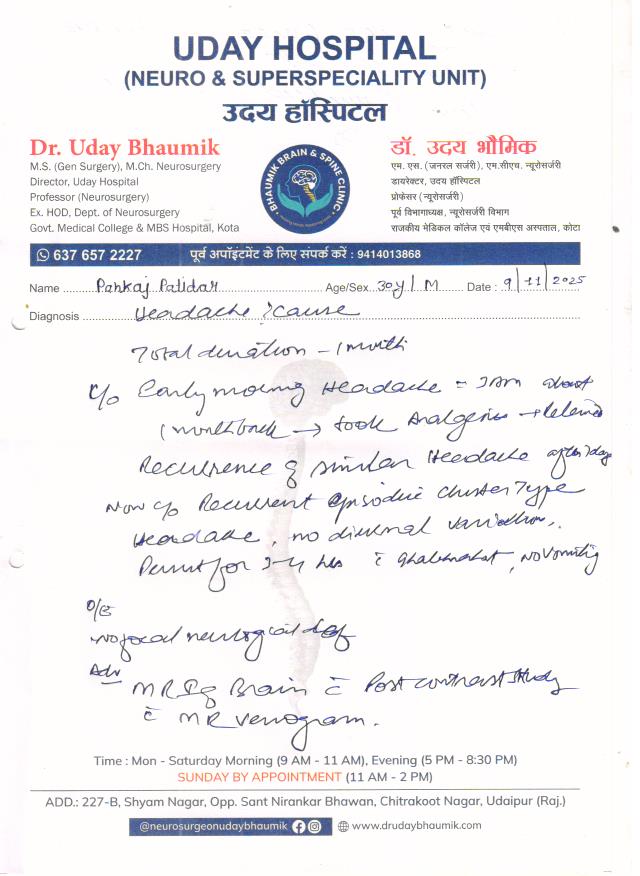 UDAY HOSPITAL
(NEURO & SUPERSPECIALITY UNIT)
उदय हॉस्पिटल
Dr. Uday Bhaumik
M.S. (Gen Surgery), M.Ch. Neurosurgery
Director, Uday Hospital
Professor (Neurosurgery)
Ex. HOD, Dept. of Neurosurgery
Govt. Medical College & MBS Hospital, Kota
BHAUMIK BRAIN & SPINE CLINIC
डॉ. उदय भौमिक
एम. एस. (जनरल सर्जरी), एम.सीएच. न्यूरोसर्जरी
डायरेक्टर, उदय हॉस्पिटल
प्रोफेसर (न्यूरोसर्जरी)
पूर्व विभागाध्यक्ष, न्यूरोसर्जरी विभाग
राजकीय मेडिकल कॉलेज एवं एमबीएस अस्पताल, कोटा
637 657 2227 पूर्व अपॉइंटमेंट के लिए संपर्क करें : 9414013868
Name Pankaj Patidar Age/Sex 30y / M Date : 9/11/2025
Diagnosis Headache ? cause
Total duration - 1 month
c/o Early morning Headache = 3 Am about
1 month back → took Analgesics →
Recurrence of similar Headache after 7 days
Now c/o Recurrent episodic cluster Type
Headache, no diurnal variation.
for 3-4 hrs c̄ ghabrahat, no vomiting
O/E
No focal neurological def
Adv
MRI of Brain c̄ Post contrast study
c̄ MR venogram.
Time : Mon - Saturday Morning (9 AM - 11 AM), Evening (5 PM - 8:30 PM)
SUNDAY BY APPOINTMENT (11 AM - 2 PM)
ADD.: 227-B, Shyam Nagar, Opp. Sant Nirankar Bhawan, Chitrakoot Nagar, Udaipur (Raj.)
@neurosurgeonudaybhaumik www.drudaybhaumik.com